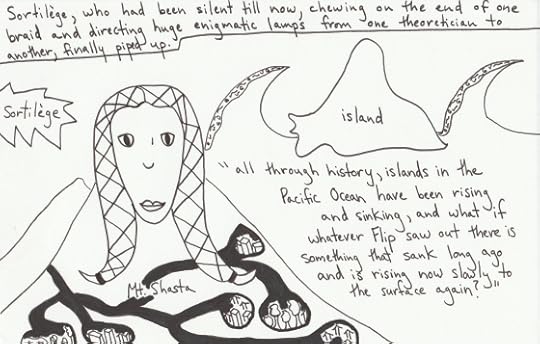 Sortilège, who had been silent till now, chewing on the end of one
braid and directing huge enigmatic lamps from one theoretician to
another, finally piped up.
Sortilège
island
"all through history, islands in the
Pacific Ocean have been rising
and sinking, and what if
whatever Flip saw out there is
something that sank long ago
and is rising now slowly to
the surface again?"
Mt. Shasta